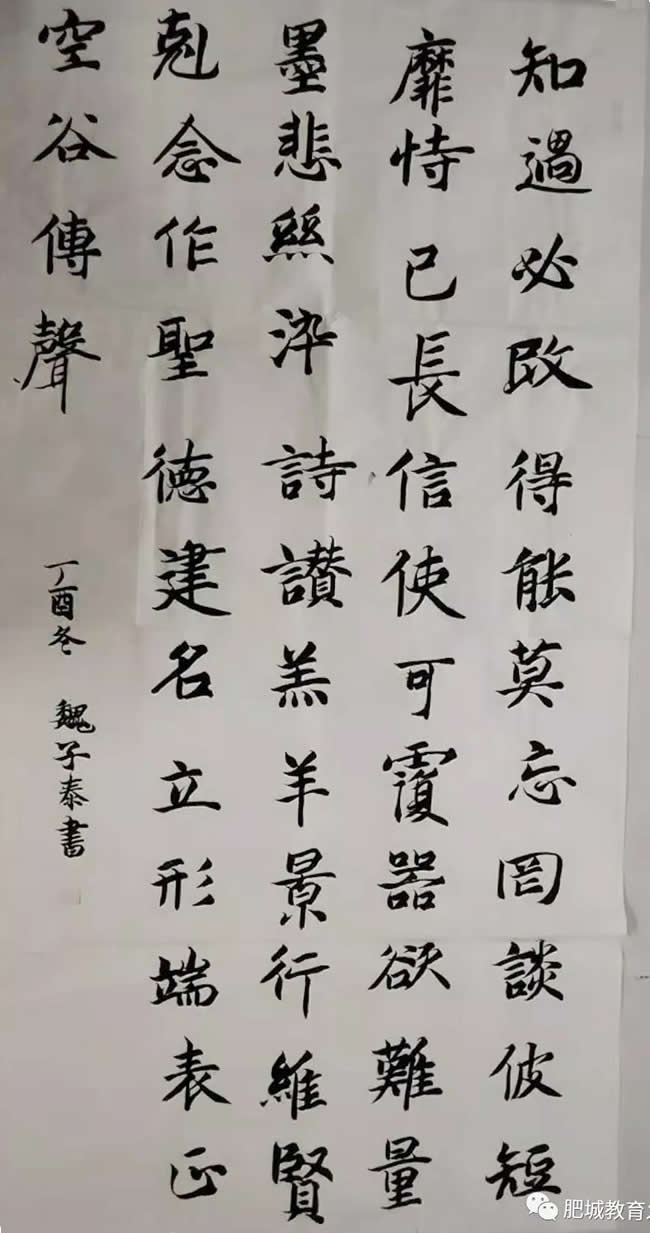 知過必改得能莫忘罔談彼短
靡恃己長信使可覆器欲難量
墨悲絲染詩讃羔羊景行維賢
剋念作聖德建名立形端表正
空谷傳聲
丁酉冬 魏子泰書
肥城教育